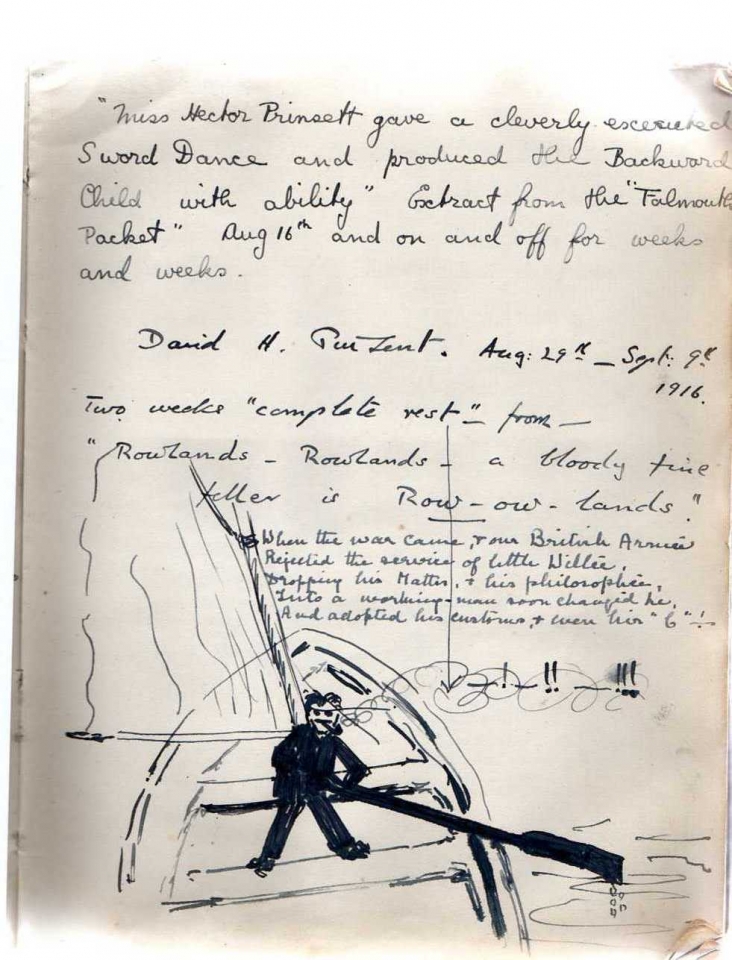 "Miss Hector Prinsett gave a cleverly executed
Sword Dance and produced the Backward
Child with ability" Extract from the "Falmouth
Packet" Aug 16th and on and off for weeks
and weeks.
David H. Aug: 29th – Sept: 9th
1916.
Two weeks "complete rest" – from –
"Rowlands – Rowlands – a bloody fine
feller is Row-ow-lands."
When the war came, & our British Armie
Rejected the service of little Willie,
Dropping his Maths, & his philosophie,
Into a working-man soon changed he,
And adopted his customs, & even his "b"–!
–!–!! –!!!